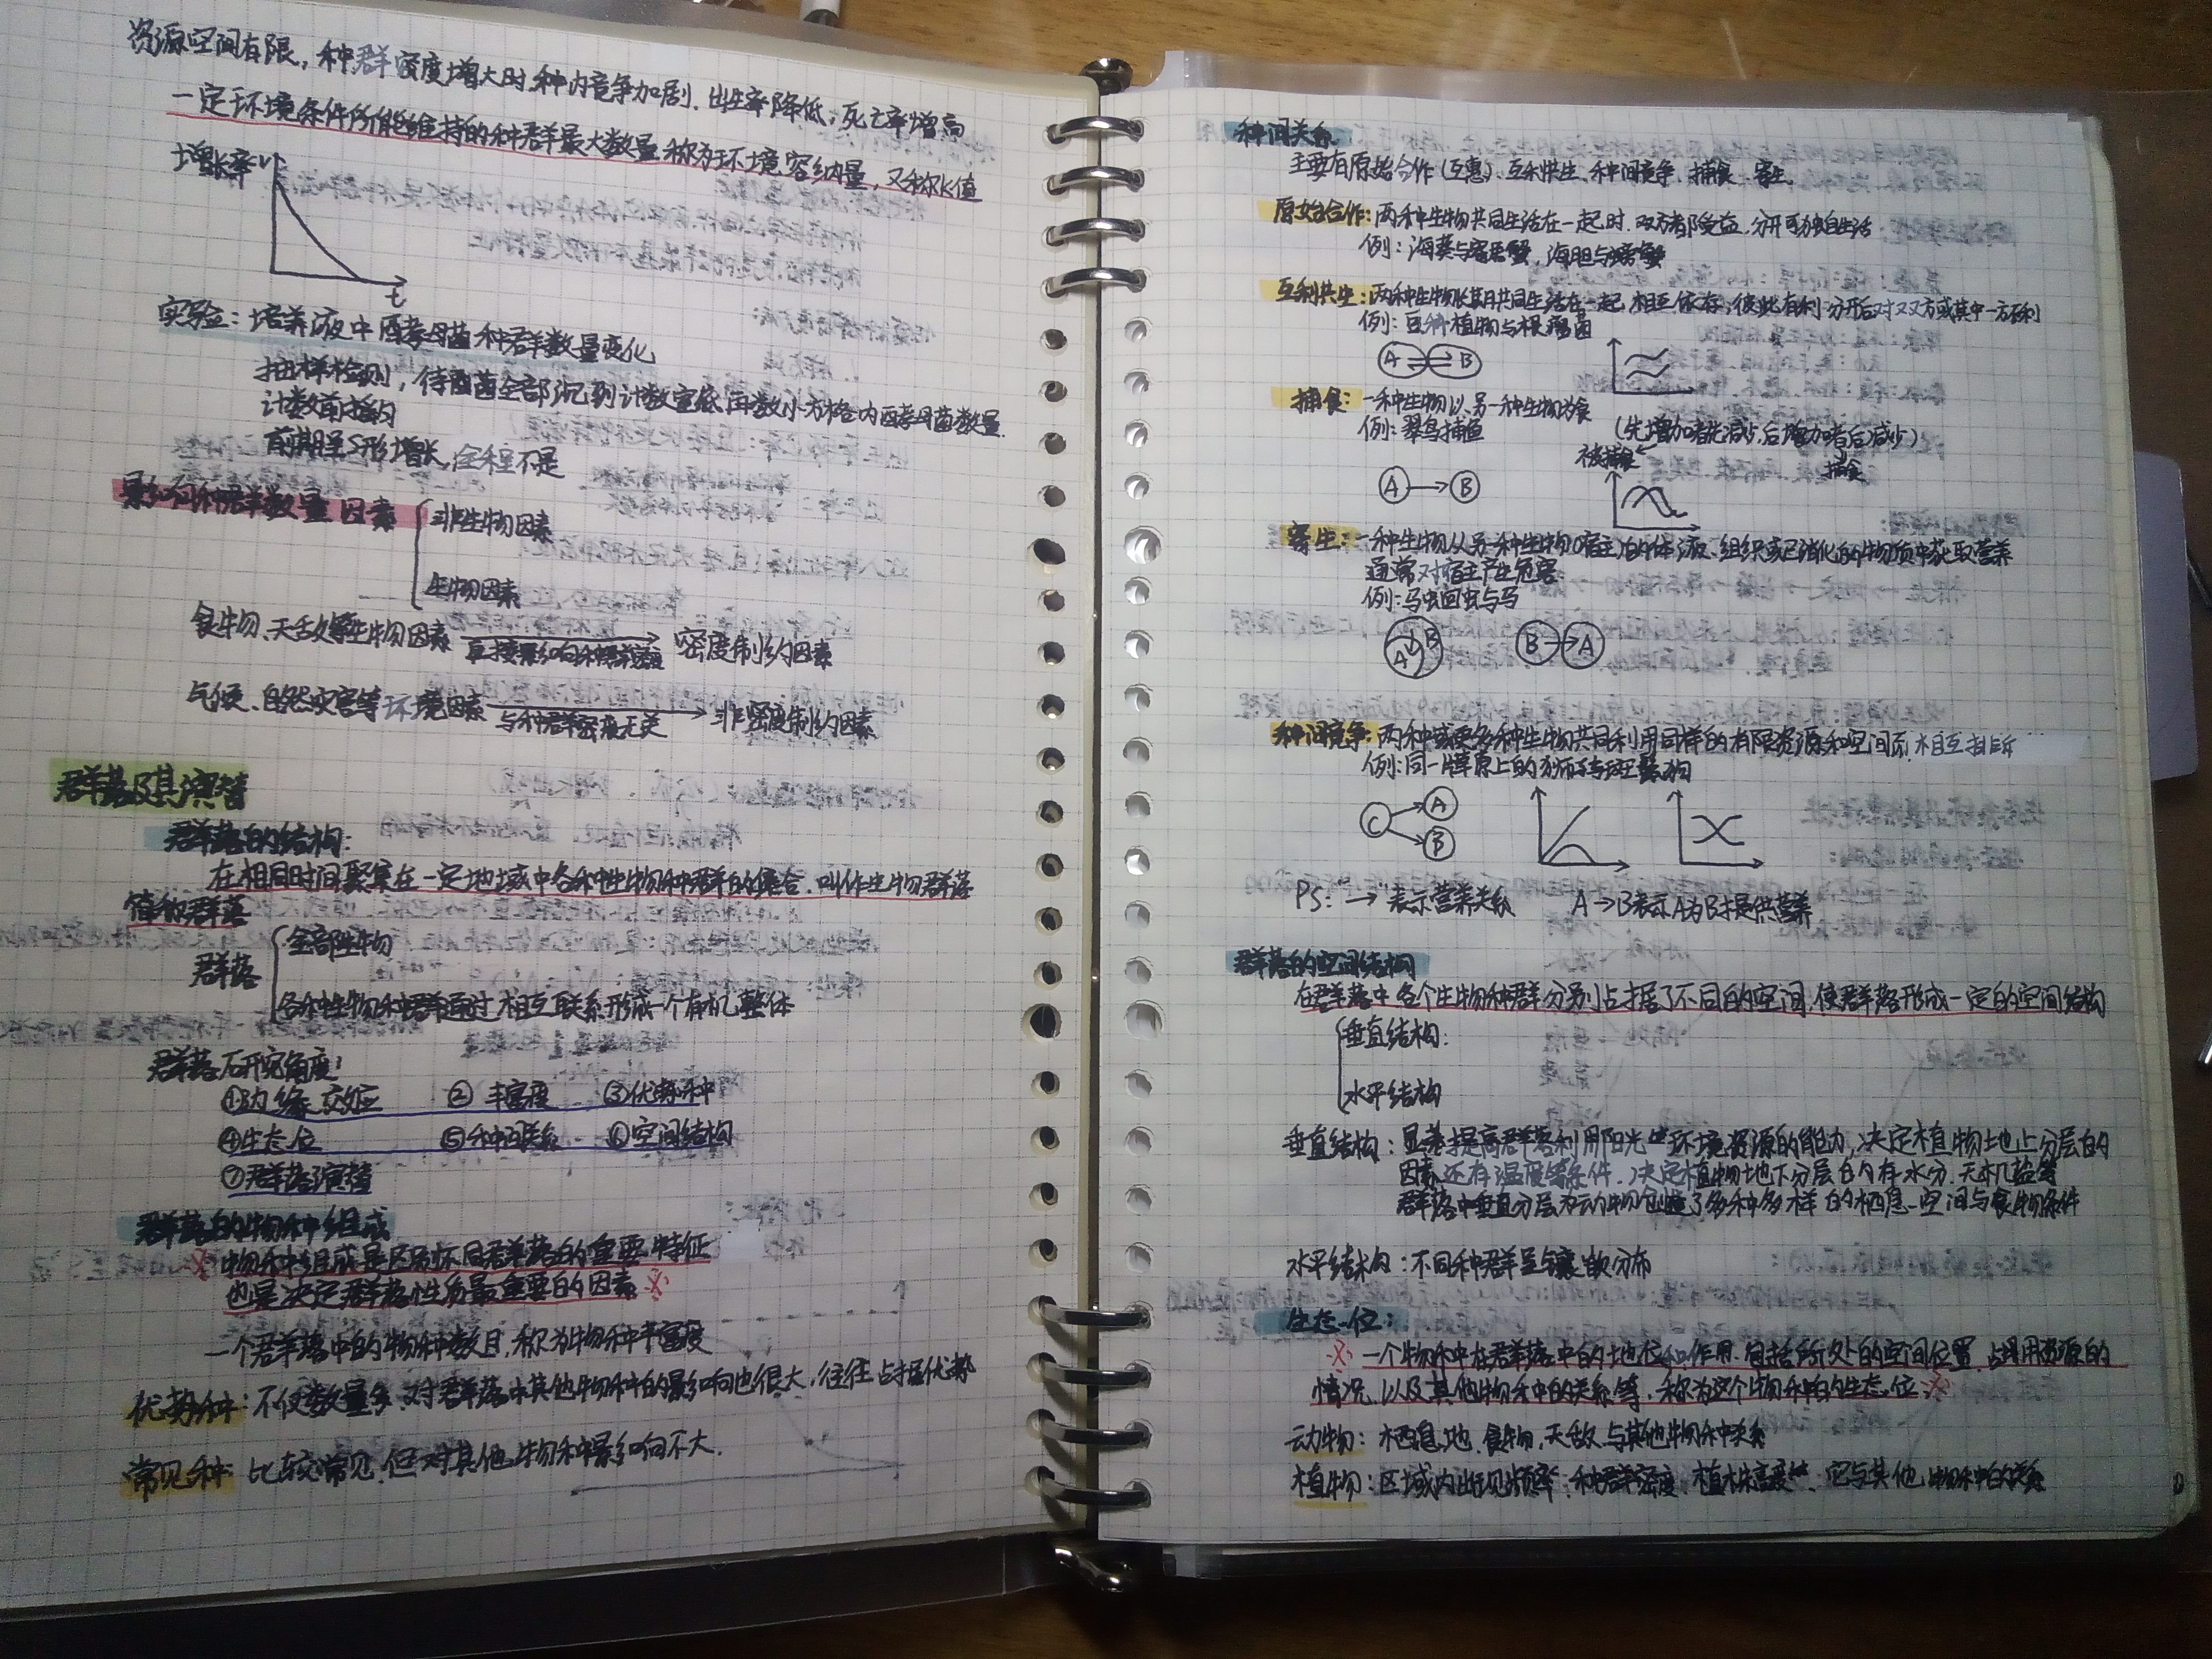 资源空间有限，种群密度增大时，种内竞争加剧，出生率降低，死亡率增高
一定环境条件所能维持的种群最大数量称为环境容纳量，又称K值
增长率
t
实验：培养液中酵母菌种群数量变化
抽样检测，待菌全部沉到计数室底，再数小方格内酵母菌数量.
计数前摇匀
前期呈S形增长，全程不是
影响种群数量因素
非生物因素
生物因素
食物、天敌等生物因素 直接影响种群 密度制约因素
气候、自然灾害等环境因素 与种群密度无关 非密度制约因素
群落及其演替
群落的结构：
在相同时间聚集在一定地域中各种生物种群的集合，叫作生物群落
简称群落
群落
全部生物
各种生物种群通过相互联系形成一个有机整体
群落研究角度：
①边缘、交处 ②丰富度 ③优势种
④生态位 ⑤种间关系 ⑥空间结构
⑦群落演替
群落的物种组成
※物种组成是区别不同群落的重要特征
也是决定群落性质最重要的因素※
一个群落中的物种数目，称为物种丰富度
优势种：不仅数量多，对群落中其他物种的影响也很大，往往占据优势
常见种：比较常见，但对其他物种影响不大.
种间关系
主要有原始合作（互惠）、互利共生、种间竞争、捕食、寄生
原始合作：两种生物共同生活在一起时，双方都受益，分开可独自生活
例：海葵与寄居蟹，海胆与螃蟹
互利共生：两种生物长期共同生活在一起，相互依存，彼此有利，分开后对双方或其中一方不利
例：豆科植物与根瘤菌
A B
捕食：一种生物以另一种生物为食
例：翠鸟捕鱼
（先增加者先减少，后增加者后减少）
被捕食 捕食
A→B
寄生：一种生物从另一种生物（宿主）的体液、组织或已消化的物质中获取营养
通常对宿主产生危害
例：马蛔虫与马
A B B→A
种间竞争：两种或更多种生物共同利用同样的有限资源和空间而相互排斥
例：同一草原上的狮子与斑鬣狗
C A
B
PS："→"表示营养关系 A→B表示A为B提供营养
群落的空间结构
在群落中各个生物种群分别占据了不同的空间，使群落形成一定的空间结构
垂直结构：
水平结构
垂直结构：显著提高群落利用阳光等环境资源的能力，决定植物地上分层的
因素还有温度等条件，决定植物地下分层的有水分、无机盐等
群落中垂直分层为动物创造了多种多样的栖息空间与食物条件
水平结构：不同种群呈镶嵌分布
生态位：
※一个物种在群落中的地位和作用，包括所处的空间位置，占用资源的
情况，以及其他物种的关系等，称为这个物种的生态位※
动物：栖息地、食物、天敌、与其他物种关系
植物：区域内出现频率、种群密度、植株高度、它与其他物种的关系